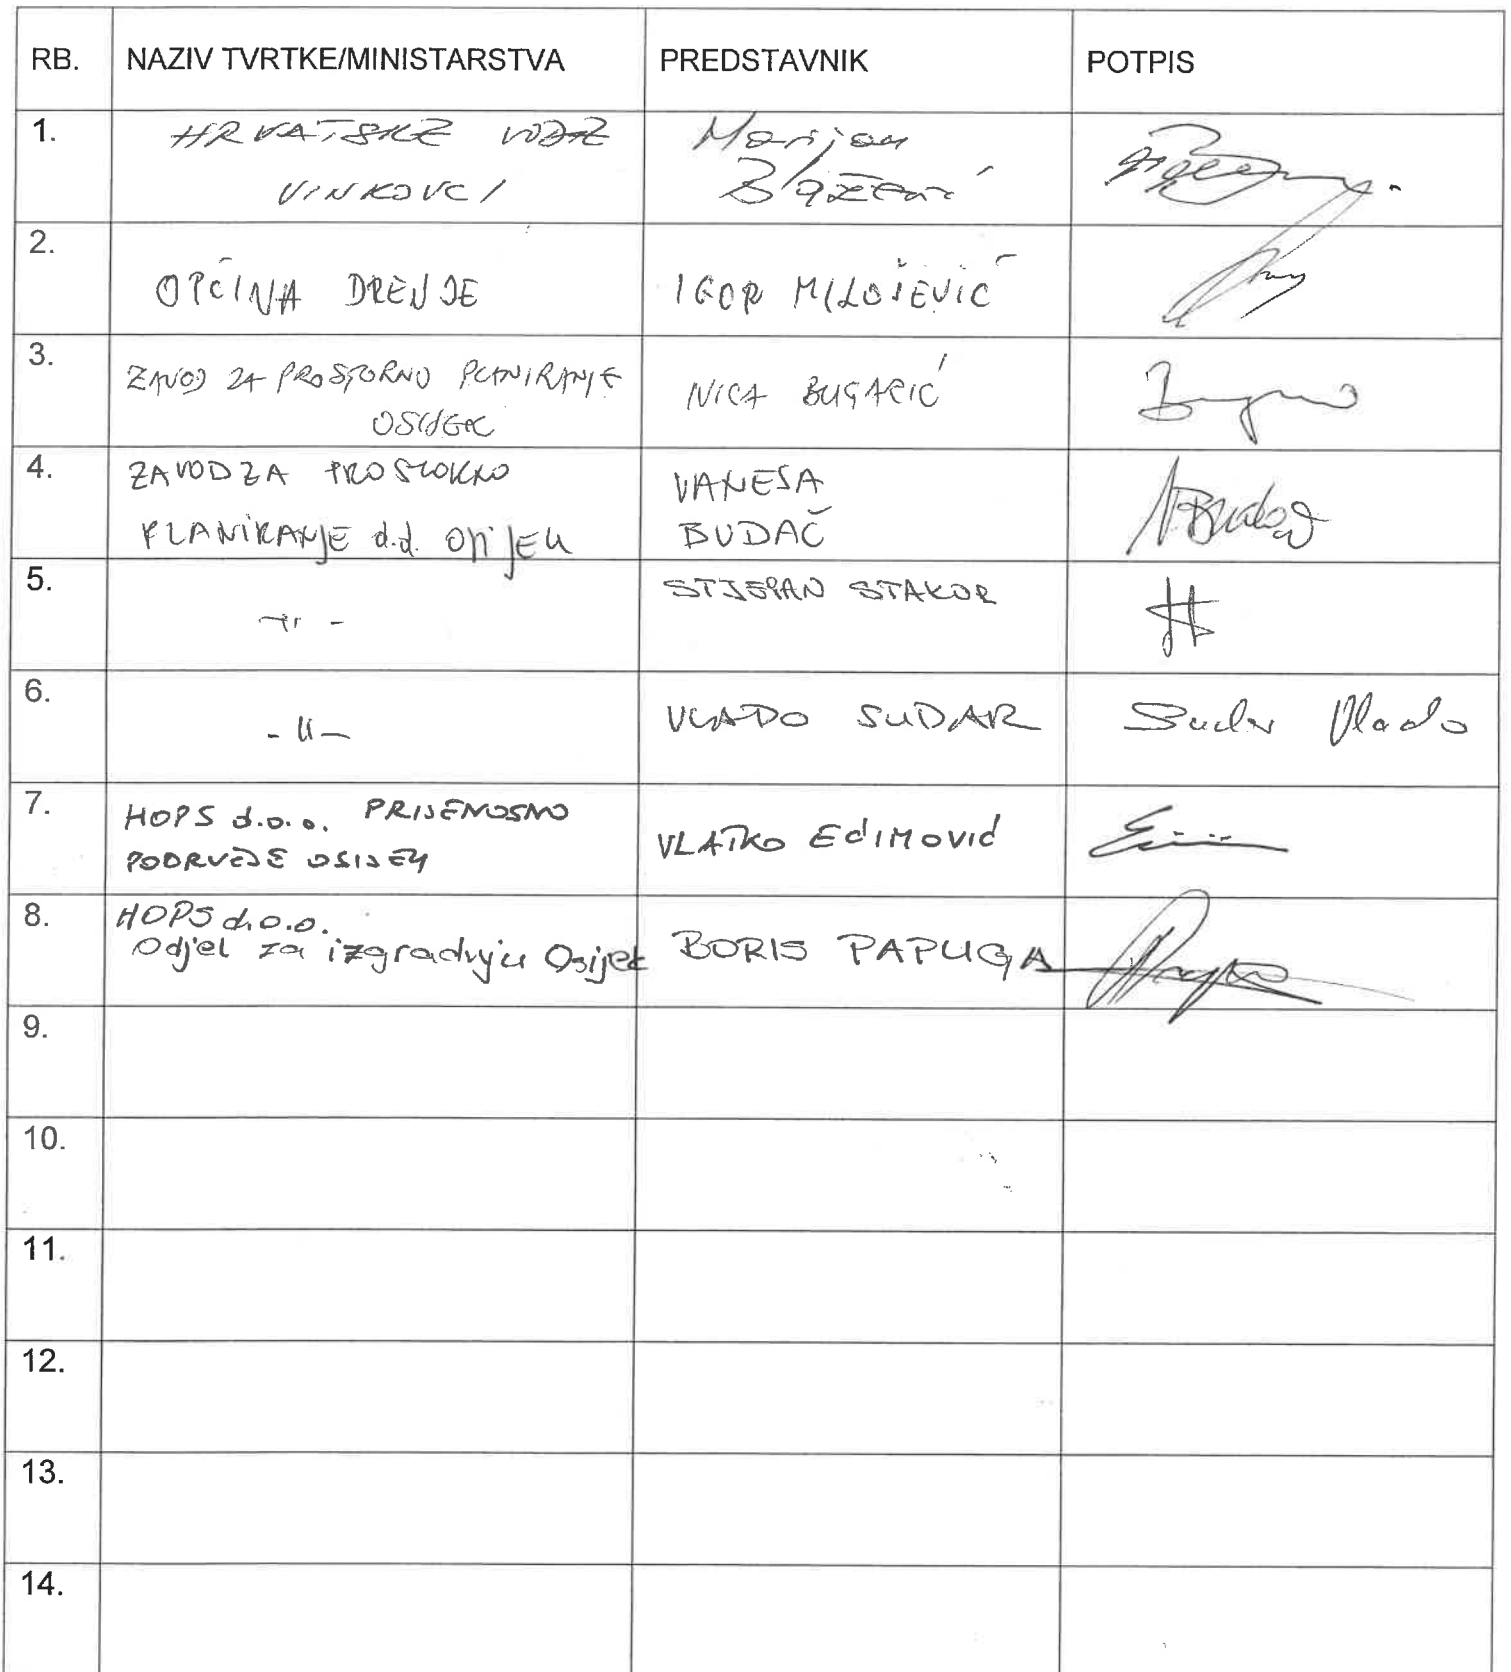 RB. NAZIV TVRTKE/MINISTARSTVA PREDSTAVNIK POTPIS
1. HRVATSKE VODE Marijan
VINKOVCI Blažević
2. OPĆINA DRENJE IGOR MILOŠEVIĆ
3. ZAVOD ZA PROSTORNO PLANIRANJE NICA BUGARIĆ
OSIJEK
4. ZAVOD ZA PROSTORNO VANESA
PLANIRANJE d.d. OSIJEK BUDAČ
5. -"- STJEPAN STAKOR
6. -"- VLADO SUDAR Sudar Vlado
7. HOPS d.o.o. PRIJENOSNO
PODRUČJE OSIJEK VLATKO EĆIMOVIĆ
8. HOPS d.o.o.
Odjel za izgradnju Osijek BORIS PAPUGA
9.
10.
11.
12.
13.
14.